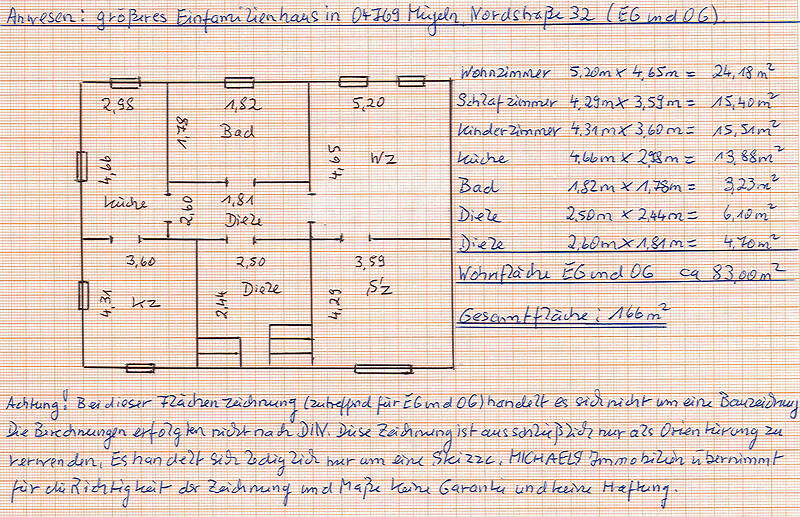 Anwesen: größeres Einfamilienhaus in 04769 Mügeln, Nordstraße 32 (EG und OG).
Wohnzimmer 5,20m x 4,65m = 24,18m²
Schlafzimmer 4,29m x 3,59m = 15,40m²
Kinderzimmer 4,31m x 3,60m = 15,51m²
Küche 4,66m x 2,98m = 13,88m²
Bad 1,82m x 1,78m = 3,23m²
Diele 2,50m x 2,44m = 6,10m²
Diele 2,60m x 1,81m = 4,70m²
Wohnfläche EG und OG ca 83,00m²
Gesamtfläche: 166m²
2,98
1,82
5,20
1,78
Bad
4,66
4,65
WZ
Küche
2,60
1,81
Diele
3,60
2,50
3,59
4,31
KZ
2,44
Diele
4,29
SZ
Achtung! Bei dieser Flächenzeichnung (zutreffend für EG und OG) handelt es sich nicht um eine Bauzeichnung
Die Berechnungen erfolgten nicht nach DIN. Diese Zeichnung ist ausschließlich nur als Orientierung zu
verwenden. Es handelt sich lediglich nur um eine Skizze. MICHAELS Immobilien übernimmt
für die Richtigkeit der Zeichnung und Maße keine Garantie und keine Haftung.